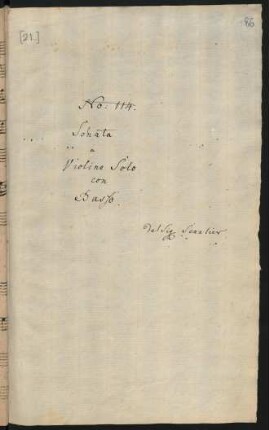 [21.]
86
No: 114.
Sonata
a
Violino Solo
con
Basso.
Del Sig.